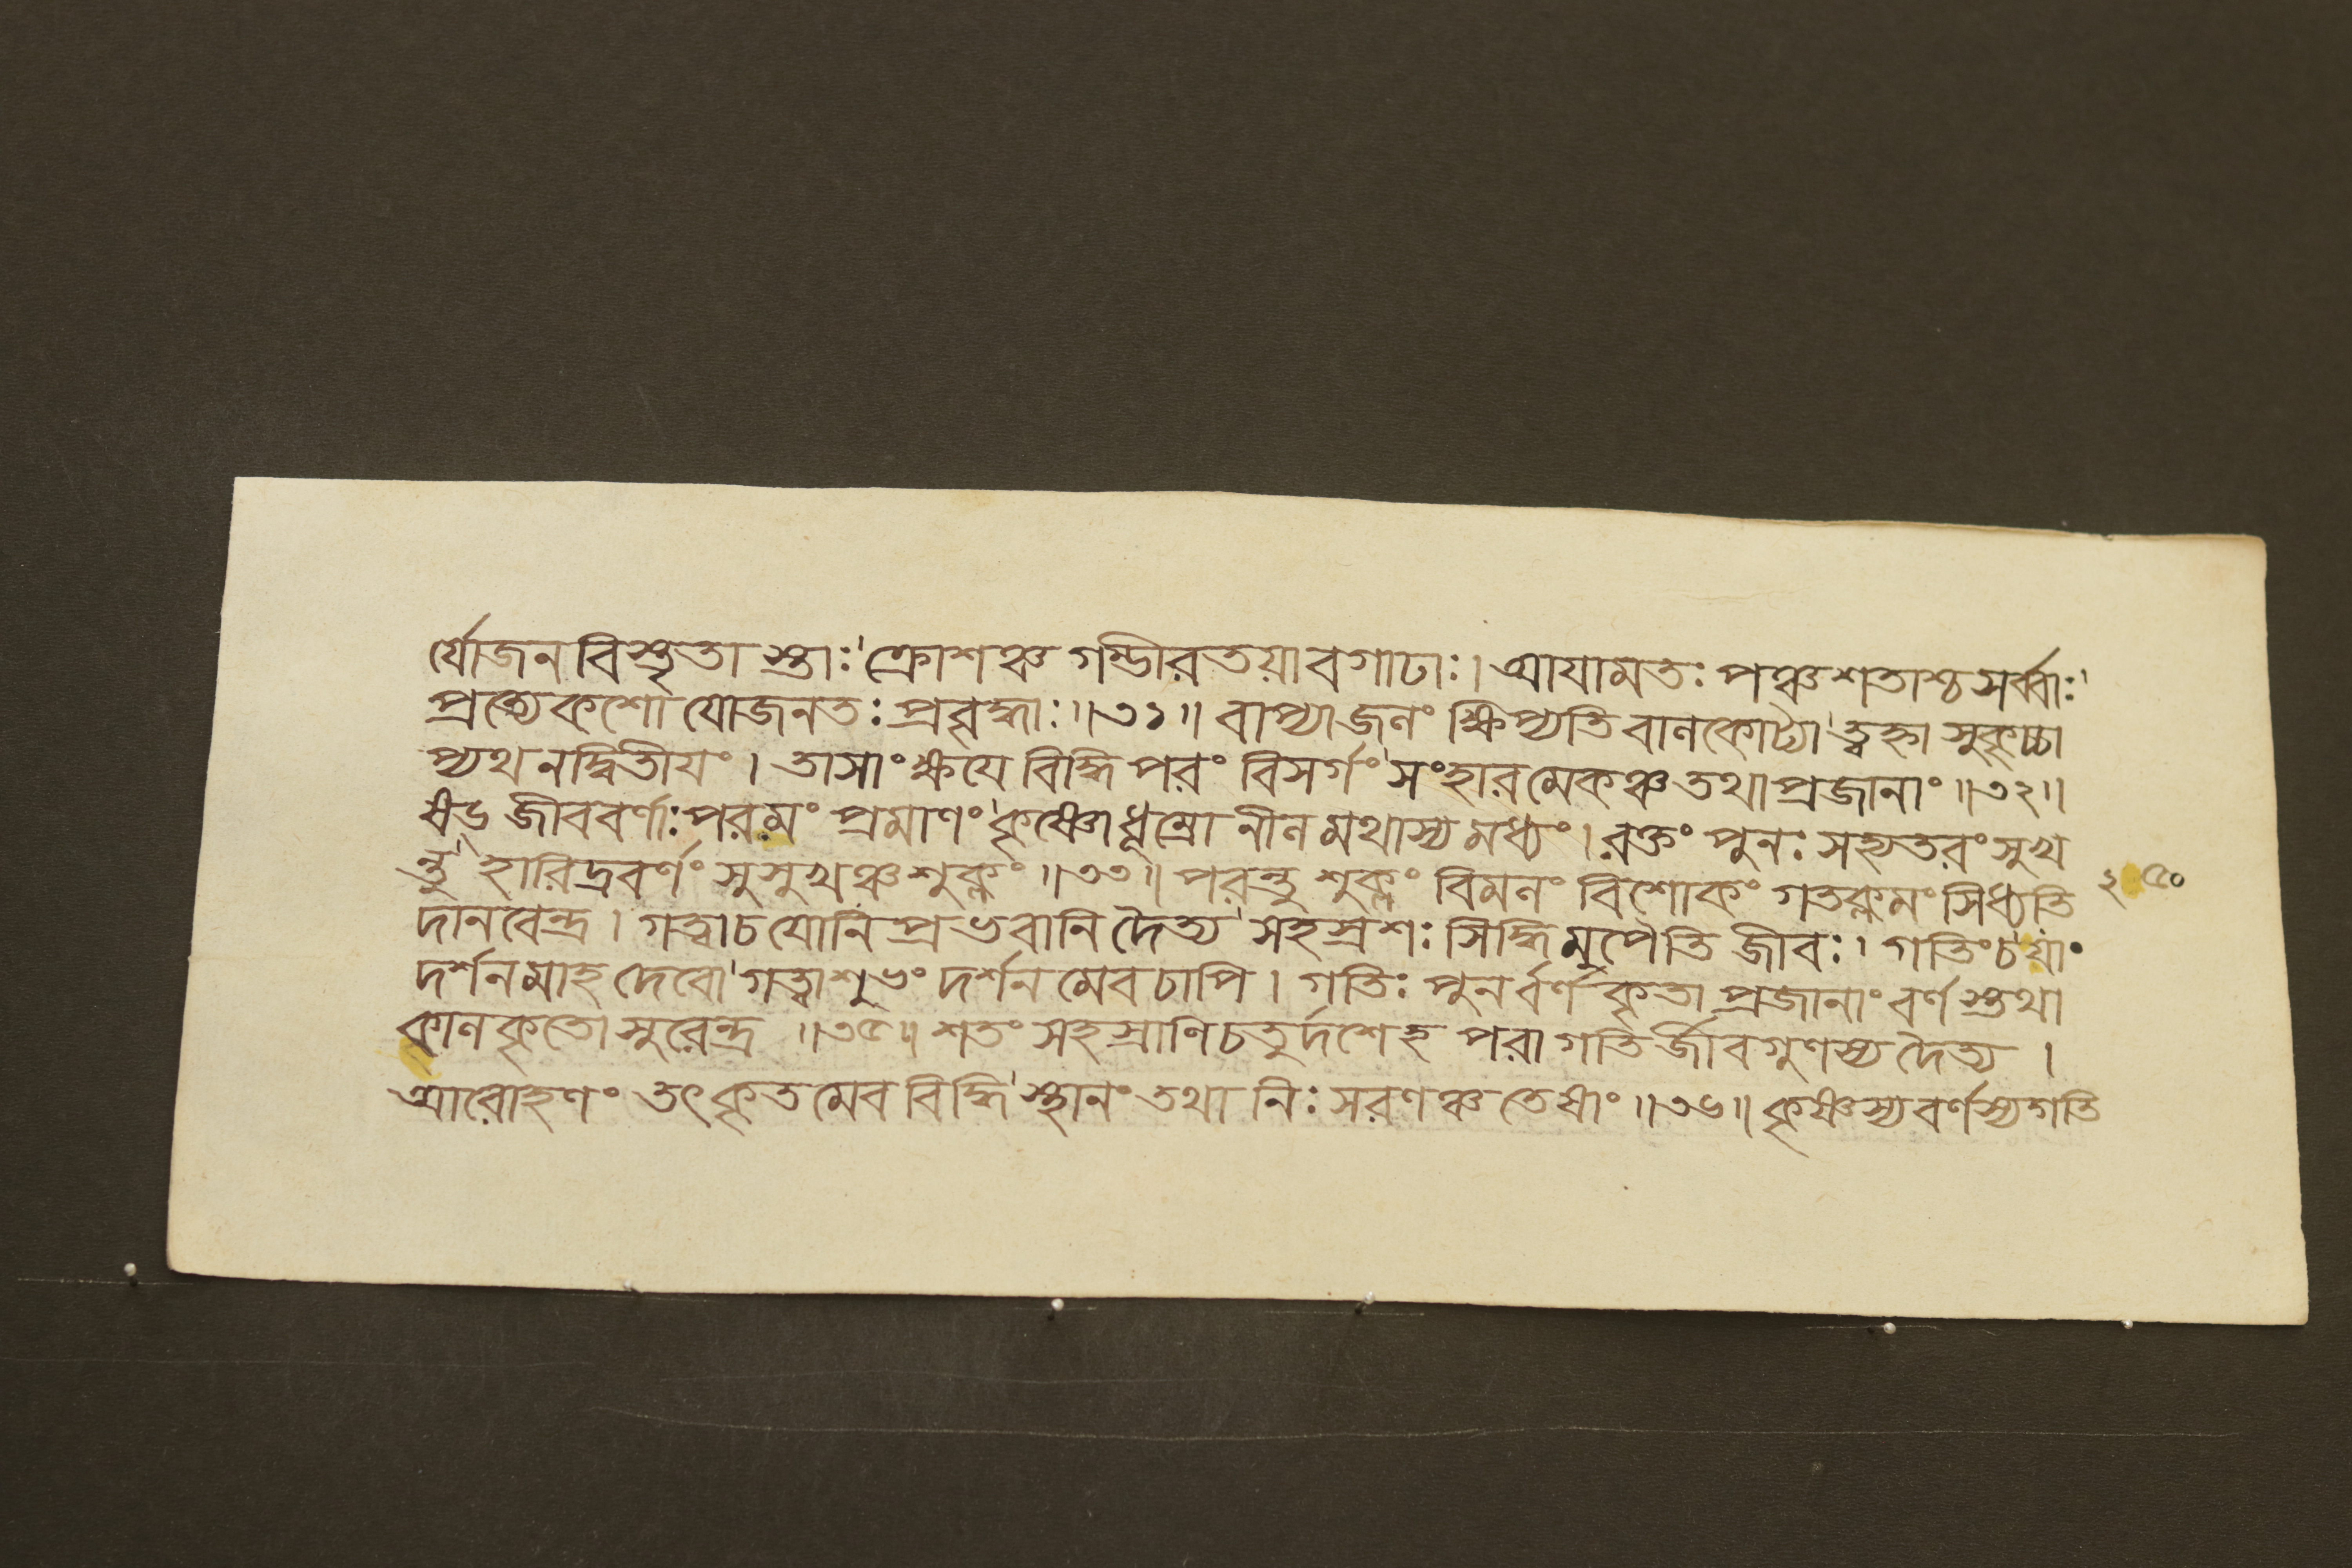 র্যোজনবিস্তৃতা স্তাঃ' ক্রোশঞ্চ গম্ভীরতয়াবগাঢাঃ। আযামতঃ পঞ্চশতাশ্চ সর্ব্বাঃ'
প্রত্যেকশো যোজনতঃ প্রবৃদ্ধাঃ॥৩১॥ বাপ্যাজলং ক্ষিপ্যতি বালকোট্যা' ত্বহ্না সকৃচ্চা
প্যথ নদ্বিতীযং। তাসাং ক্ষযে বিদ্ধি পরং বিসর্গং' সংহারমেকঞ্চ তথা প্রজানাং॥৩২॥
ষড্ জীববর্ণাঃ পরমং প্রমাণং' কৃষ্ণো ধূম্রো নীলমথাস্য মধ্যং। রক্তং পুনঃ সহ্যতরং সুখ
ন্তু' হারিদ্রবর্ণং সুসুখঞ্চ শুক্লং॥৩৩॥ পরন্তু শুক্লং বিমলং বিশোকং গতক্লমং সিধ্যতি
দানবেন্দ্র। গত্বা চ যোনিপ্রভবানি দৈত্য' সহস্রশঃ সিদ্ধিমুপৈতি জীবঃ। গতিং চ যাং
দর্শনমাহ দেবো' গত্বা শুভং দর্শনমেব চাপি। গতিঃ পুনর্বর্ণকৃতা প্রজানাং বর্ণস্তথা
কালকৃতো সুরেন্দ্র ॥৩৫॥ শতং সহস্রাণি চতুর্দশেহ পরা গতির্জীবগুণস্য দৈত্য ।
আরোহণং তৎকৃতমেব বিদ্ধি' স্থানং তথা নিঃসরণঞ্চ তেষাং॥৩৬॥ কৃষ্ণস্য বর্ণস্য গতি
২৫০